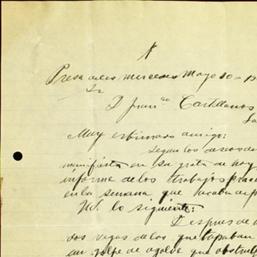 Presa de las mercedes Mayo 10-19
Sr
D Juan Castellanos
Muy estimado amigo:
Segun los deseos de
manifiesta en su grata de hoy
informe de los trabajos prac
en la semana que
Vd. lo siguiente:
Despues de
dos vigas de los que tapaban
un golpe de agolde que obstruia